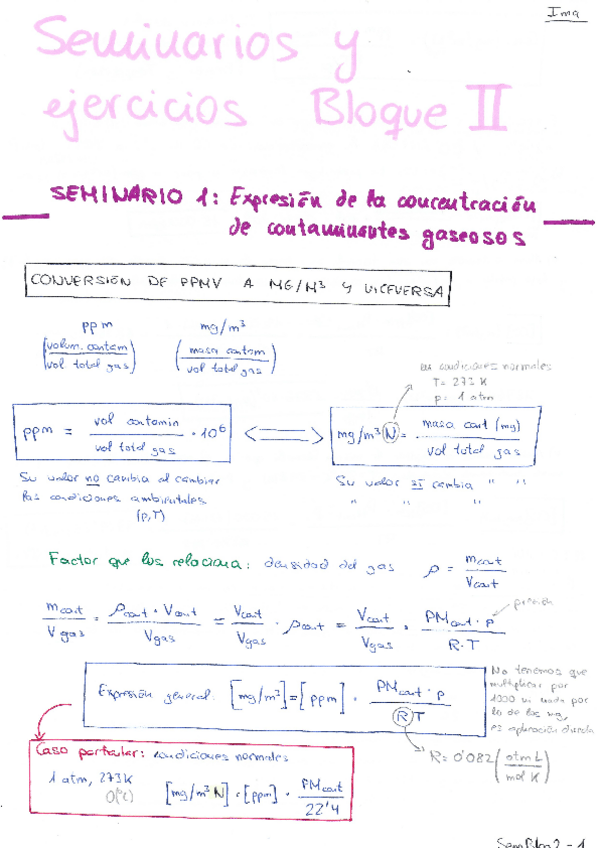 Ima
Seminarios y
ejercicios Bloque II
SEMINARIO 1: Expresión de la concentración
de contaminantes gaseosos
CONVERSIÓN DE PPMV A MG/M³ Y VICEVERSA
ppm mg/m³
(volum. contam / vol total gas) (masa contam / vol total gas)
en condiciones normales
T= 273 K
p= 1 atm
ppm = vol contamin / vol total gas · 10⁶ <=> mg/m³ N = masa cont (mg) / vol total gas
Su valor no cambia al cambiar
las condiciones ambientales
(p,T)
Su valor SI cambia " "
" " "
Factor que los relaciona: densidad del gas ρ = m cont / V cont
m cont / V gas = ρ cont · V cont / V gas = V cont / V gas · ρ cont = V cont / V gas · PM cont · p / R·T
presión
Expresión general [mg/m³] = [ppm] · PM cont · p / RT
No tenemos que
multiplicar por
1000 ni nada por
lo de los mg,
es aplicación directa
R= 0'082 (atm L / mol K)
Caso particular: condiciones normales
1 atm, 273K
0(ºC)
[mg/m³ N] = [ppm] · PM cont / 22'4
SemBlo2-1